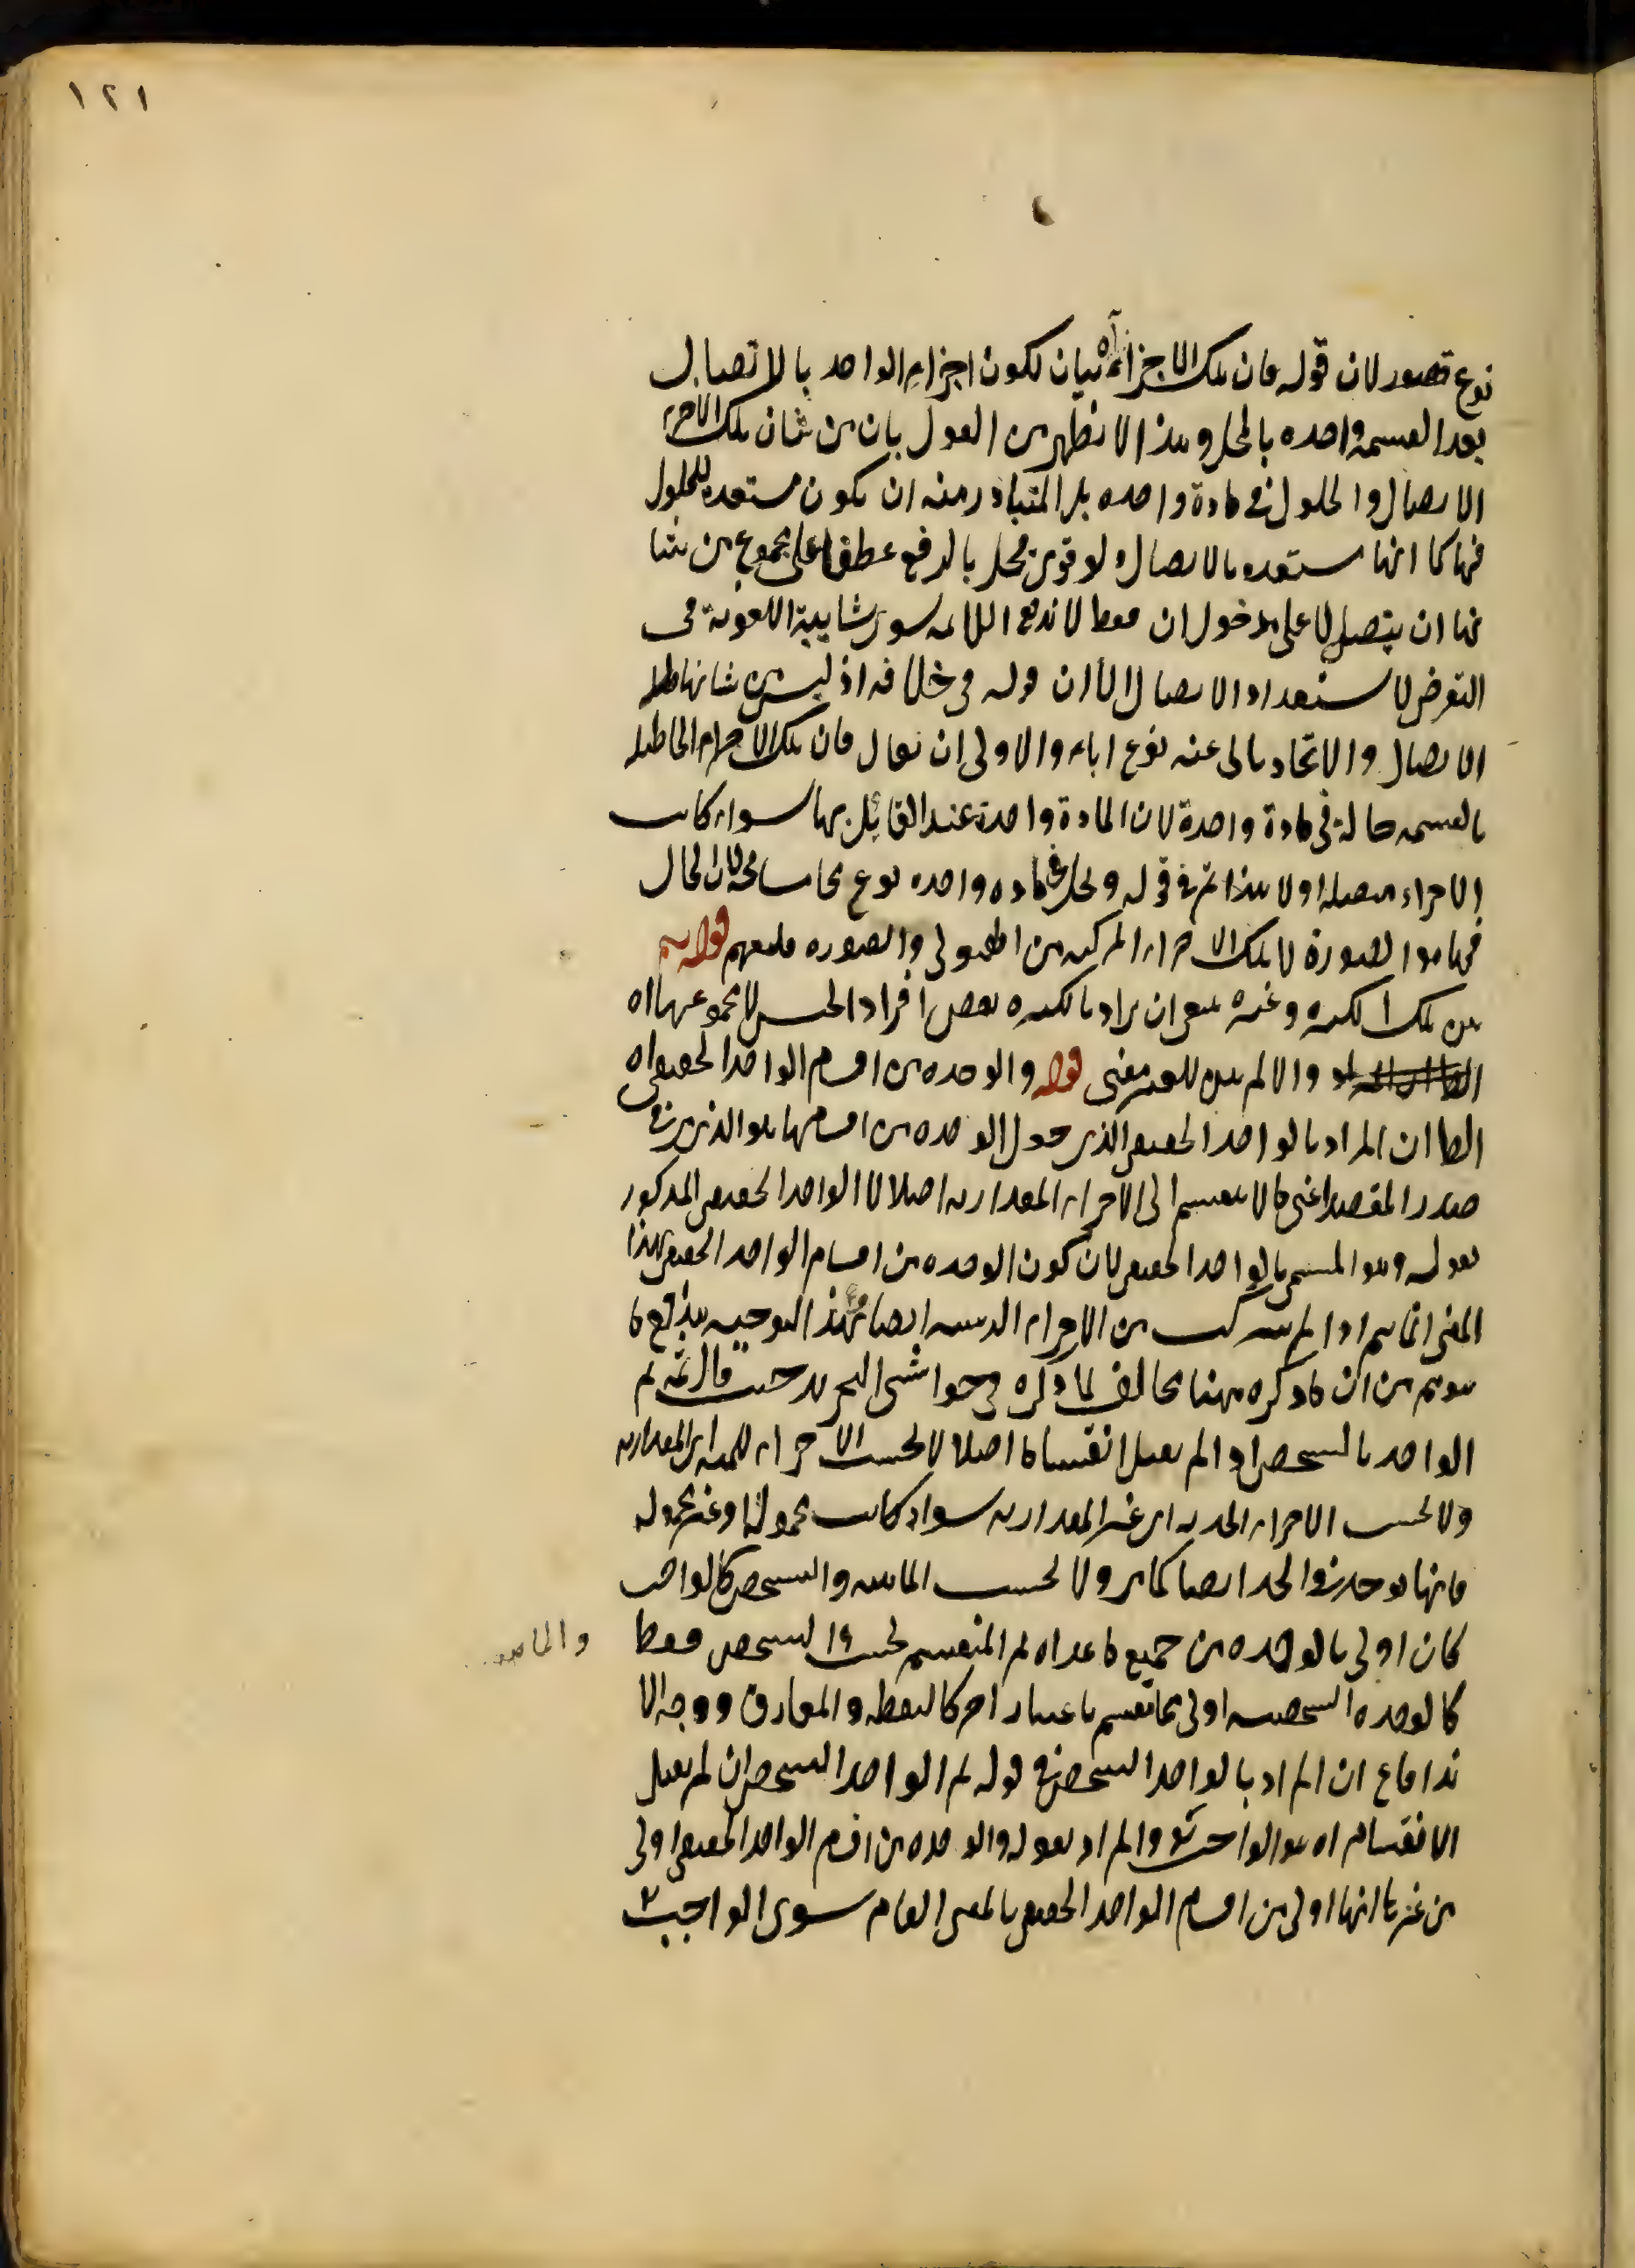 ١٢١
نوع قصور لان قوله فان تلك الاجزاء اه بيان لكون اجزاء الواحد بالاتصال
بعد القسمة واحدة بالمحل وهذا لا يظهر من القول بان من شان تلك الاجزاء
الاتصال والحلول في مادة واحدة بل المتبادر منه ان يكون مستعدة للحلول
فيها كما انها مستعدة بالاتصال ولو قرئ محل بالرفع عطفا على مجموع من شا
نها ان يتصل لا على مدخول ان فقط لاندفع الثلاثة سوى شايبة اللغوية في
التعرض لاستعداد الاتصال الا ان قوله في خلافه اذ ليس من شانها
الاتصال والاتحاد يابى عنه نوع اباء والاولى ان يقال فان تلك الاجزاء الحاصلة
بالقسمة حالة في مادة واحدة لان المادة واحدة عند القائل بها سواء كانت
الاجزاء متصلة اولا هذا ثم في قوله ويحل في مادة واحدة نوع مسامحة لان الحال
فيها هو الصورة لا تلك الاجزاء المركبة من الهيولى والصورة فليفهم قوله
بين تلك الكثرة وغيره ينبغي ان يراد بالكثرة بعض افراد الجنس لا مجموعها اه
والا لم يبق للغير معنى قوله والوحدة من اقسام الواحد الحقيقي اه
الظا ان المراد بالواحد الحقيقي الذي جعل الوحدة من اقسامها هو الذي في
صدر المقصد اعني ما لا ينقسم الى الاجزاء المقدارية اصلا لا الواحد الحقيقي المذكور
بقوله وهو المسمى بالواحد الحقيقي لان كون الوحدة من اقسام الواحد الحقيقي بهذا
المعنى انما يتم اذا لم يتركب من الاجزاء الذهنية ايضا فبهذا التوجيه يندفع ما
يتوهم من ان ما ذكره ههنا مخالف لما ذكره في حواشي التجريد حيث قال ثمه ثم
الواحد بالشخص اذا لم يقبل انقساما اصلا لا بحسب الاجزاء المقدارية
ولا بحسب الاجزاء الحدية اي غير المقدارية سواء كانت محمولة او غير محمولة
فانها يوجد في الحد ايضا كما مر ولا بحسب الماهية والتشخص كالواجب
كان اولى بالوحدة من جميع ما عداه ثم المنقسم بحسب التشخص فقط
كالوحدة الشخصية اولى مما ينقسم باعتبار اخر كالنقطة والمفارق ووجه الا
ندفاع ان المراد بالواحد الشخص في قوله ثم الواحد الشخص ان لم يقبل
الانقسام اه هو الواجب والمراد بقوله والوحدة من اقسام الواحد الحقيقي اولى
من غيرها انها اولى من اقسام الواحد الحقيقي بالمعنى العام سوى الواجب